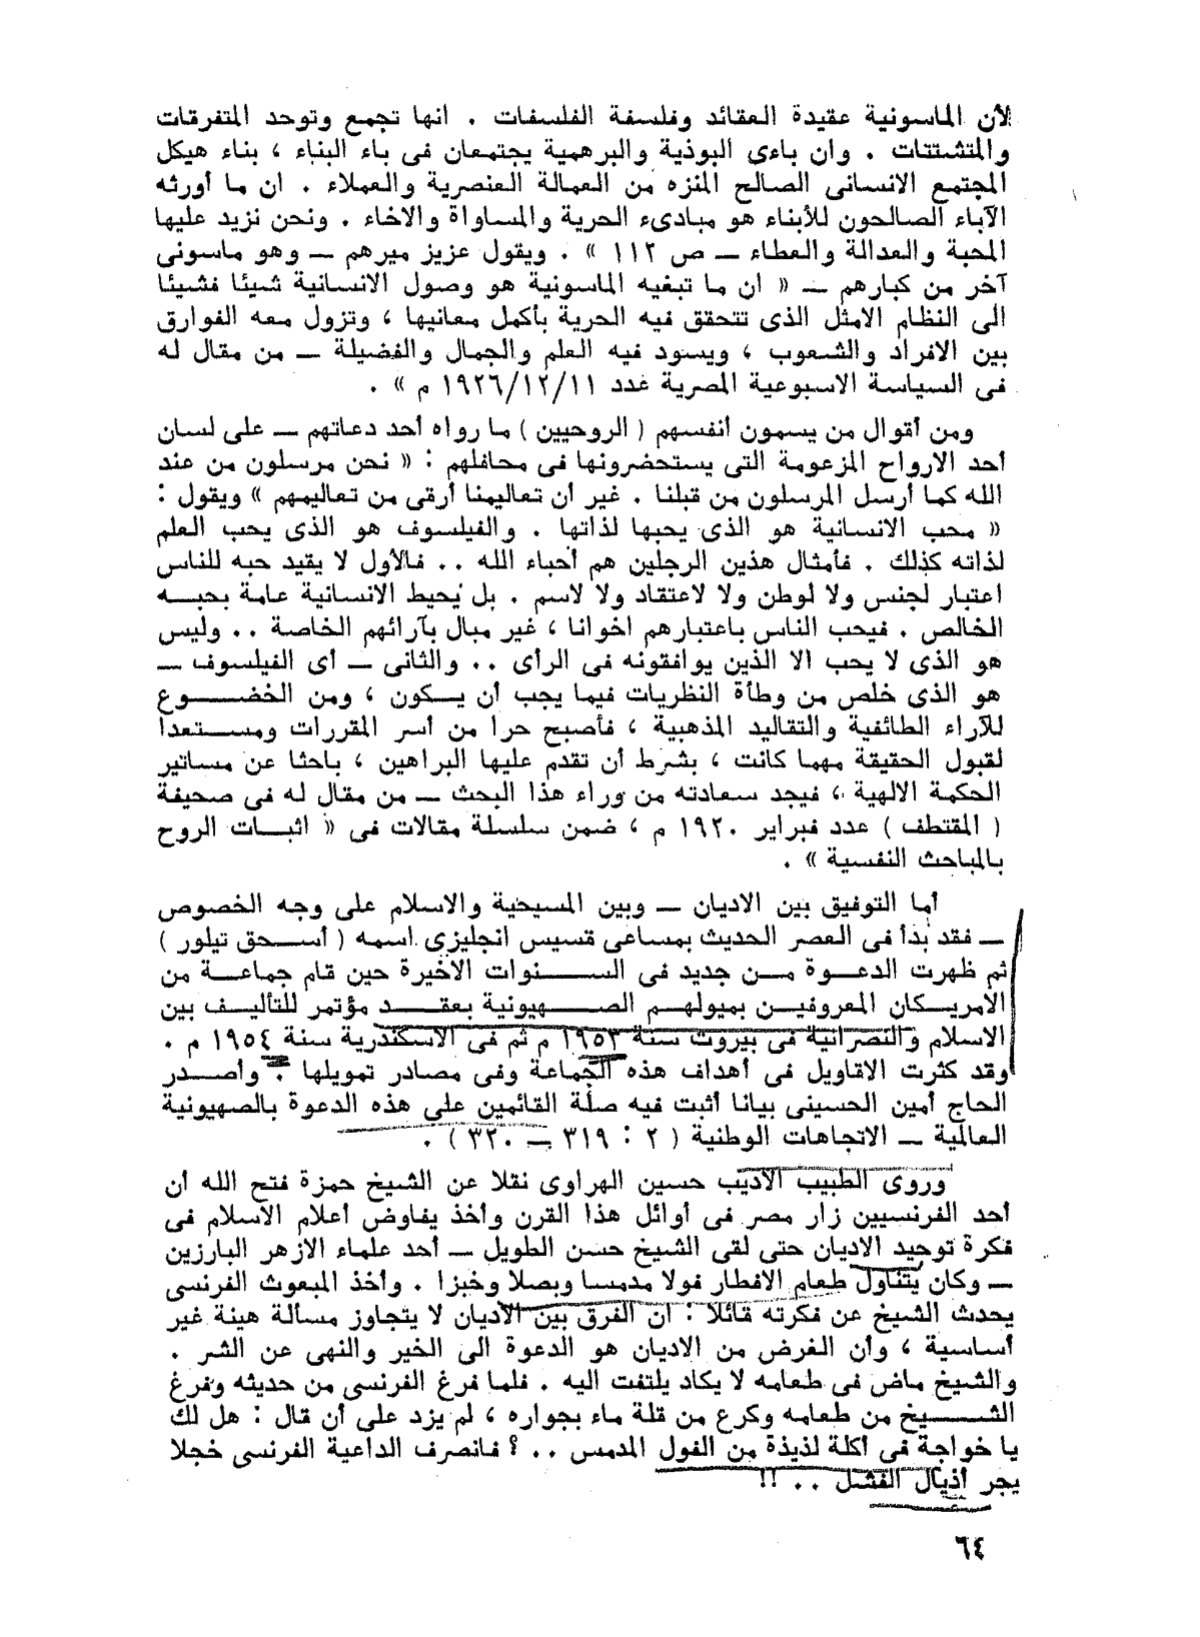 لأن الماسونية عقيدة العقائد وفلسفة الفلسفات . انها تجمع وتوحد المتفرقات
والمتشتتات . وان باءى البوذية والبرهمية يجتمعان فى باء البناء ، بناء هيكل
المجتمع الانسانى الصالح المنزه من العمالة العنصرية والعملاء . ان ما أورثه
الآباء الصالحون للأبناء هو مبادىء الحرية والمساواة والاخاء . ونحن نزيد عليها
المحبة والعدالة والعطاء ــ ص ١١٢ » . ويقول عزيز ميرهم ــ وهو ماسونى
آخر من كبارهم ــ « ان ما تبغيه الماسونية هو وصول الانسانية شيئا فشيئا
الى النظام الامثل الذى تتحقق فيه الحرية بأكمل معانيها ، وتزول معه الفوارق
بين الافراد والشعوب ، ويسود فيه العلم والجمال والفضيلة ــ من مقال له
فى السياسة الاسبوعية المصرية عدد ١٩٢٦/١٢/١١ م » .
ومن أقوال من يسمون أنفسهم ( الروحيين ) ما رواه أحد دعاتهم ــ على لسان
أحد الارواح المزعومة التى يستحضرونها فى محافلهم : « نحن مرسلون من عند
الله كما أرسل المرسلون من قبلنا . غير أن تعاليمنا أرقى من تعاليمهم » ويقول :
« محب الانسانية هو الذى يحبها لذاتها . والفيلسوف هو الذى يحب العلم
لذاته كذلك . فأمثال هذين الرجلين هم أحباء الله .. فالأول لا يقيد حبه للناس
اعتبار لجنس ولا لوطن ولا لاعتقاد ولا لاسم . بل يحيط الانسانية عامة بحبـــه
الخالص . فيحب الناس باعتبارهم اخوانا ، غير مبال بآرائهم الخاصة .. وليس
هو الذى لا يحب الا الذين يوافقونه فى الرأى .. والثانى ــ أى الفيلسوف ــ
هو الذى خلص من وطأة النظريات فيما يجب أن يـــكون ، ومن الخضـــــوع
للآراء الطائفية والتقاليد المذهبية ، فأصبح حرا من أسر المقررات ومســـتعدا
لقبول الحقيقة مهما كانت ، بشرط أن تقدم عليها البراهين ، باحثا عن مساتير
الحكمة الالهية ، فيجد سعادته من وراء هذا البحث ــ من مقال له فى صحيفة
( المقتطف ) عدد فبراير ١٩٢٠ م ، ضمن سلسلة مقالات فى « اثبـــات الروح
بالمباحث النفسية » .
أما التوفيق بين الاديان ــ وبين المسيحية والاسلام على وجه الخصوص
ــ فقد بدأ فى العصر الحديث بمساعى قسيس انجليزى اسمه ( أســـحق تيلور )
ثم ظهرت الدعـــوة مـــن جديد فى الســـــنوات الاخيرة حين قام جماعـــة من
الامريـــكان المعروفيـــن بميولهـــم الصـــهيونية بعقـــد مؤتمر للتأليـــف بين
الاسلام والنصرانية فى بيروت سنة ١٩٥٣ م ثم فى الاسكندرية سنة ١٩٥٤ م .
وقد كثرت الاقاويل فى أهداف هذه الجماعة وفى مصادر تمويلها . وأصـــدر
الحاج أمين الحسينى بيانا أثبت فيه صلة القائمين على هذه الدعوة بالصهيونية
العالمية ــ الاتجاهات الوطنية ( ٢ : ٣١٩ ــ ٣٢٠ ) .
وروى الطبيب الاديب حسين الهراوى نقلا عن الشيخ حمزة فتح الله أن
أحد الفرنسيين زار مصر فى أوائل هذا القرن وأخذ يفاوض أعلام الاسلام فى
فكرة توحيد الاديان حتى لقى الشيخ حسن الطويل ــ أحد علماء الازهر البارزين
ــ وكان يتناول طعام الافطار فولا مدمسا وبصلا وخبزا . وأخذ المبعوث الفرنسى
يحدث الشيخ عن فكرته قائلا : ان الفرق بين الأديان لا يتجاوز مسالة هينة غير
أساسية ، وأن الغرض من الاديان هو الدعوة الى الخير والنهى عن الشر .
والشيخ ماض فى طعامه لا يكاد يلتفت اليه . فلما فرغ الفرنسى من حديثه وفرغ
الشـــــيخ من طعامه وكرع من قلة ماء بجواره ، لم يزد على أن قال : هل لك
يا خواجة فى أكلة لذيذة من الفول المدمس .. ؟ فانصرف الداعية الفرنسى خجلا
يجر أذيال الفشل .. !!
٦٤